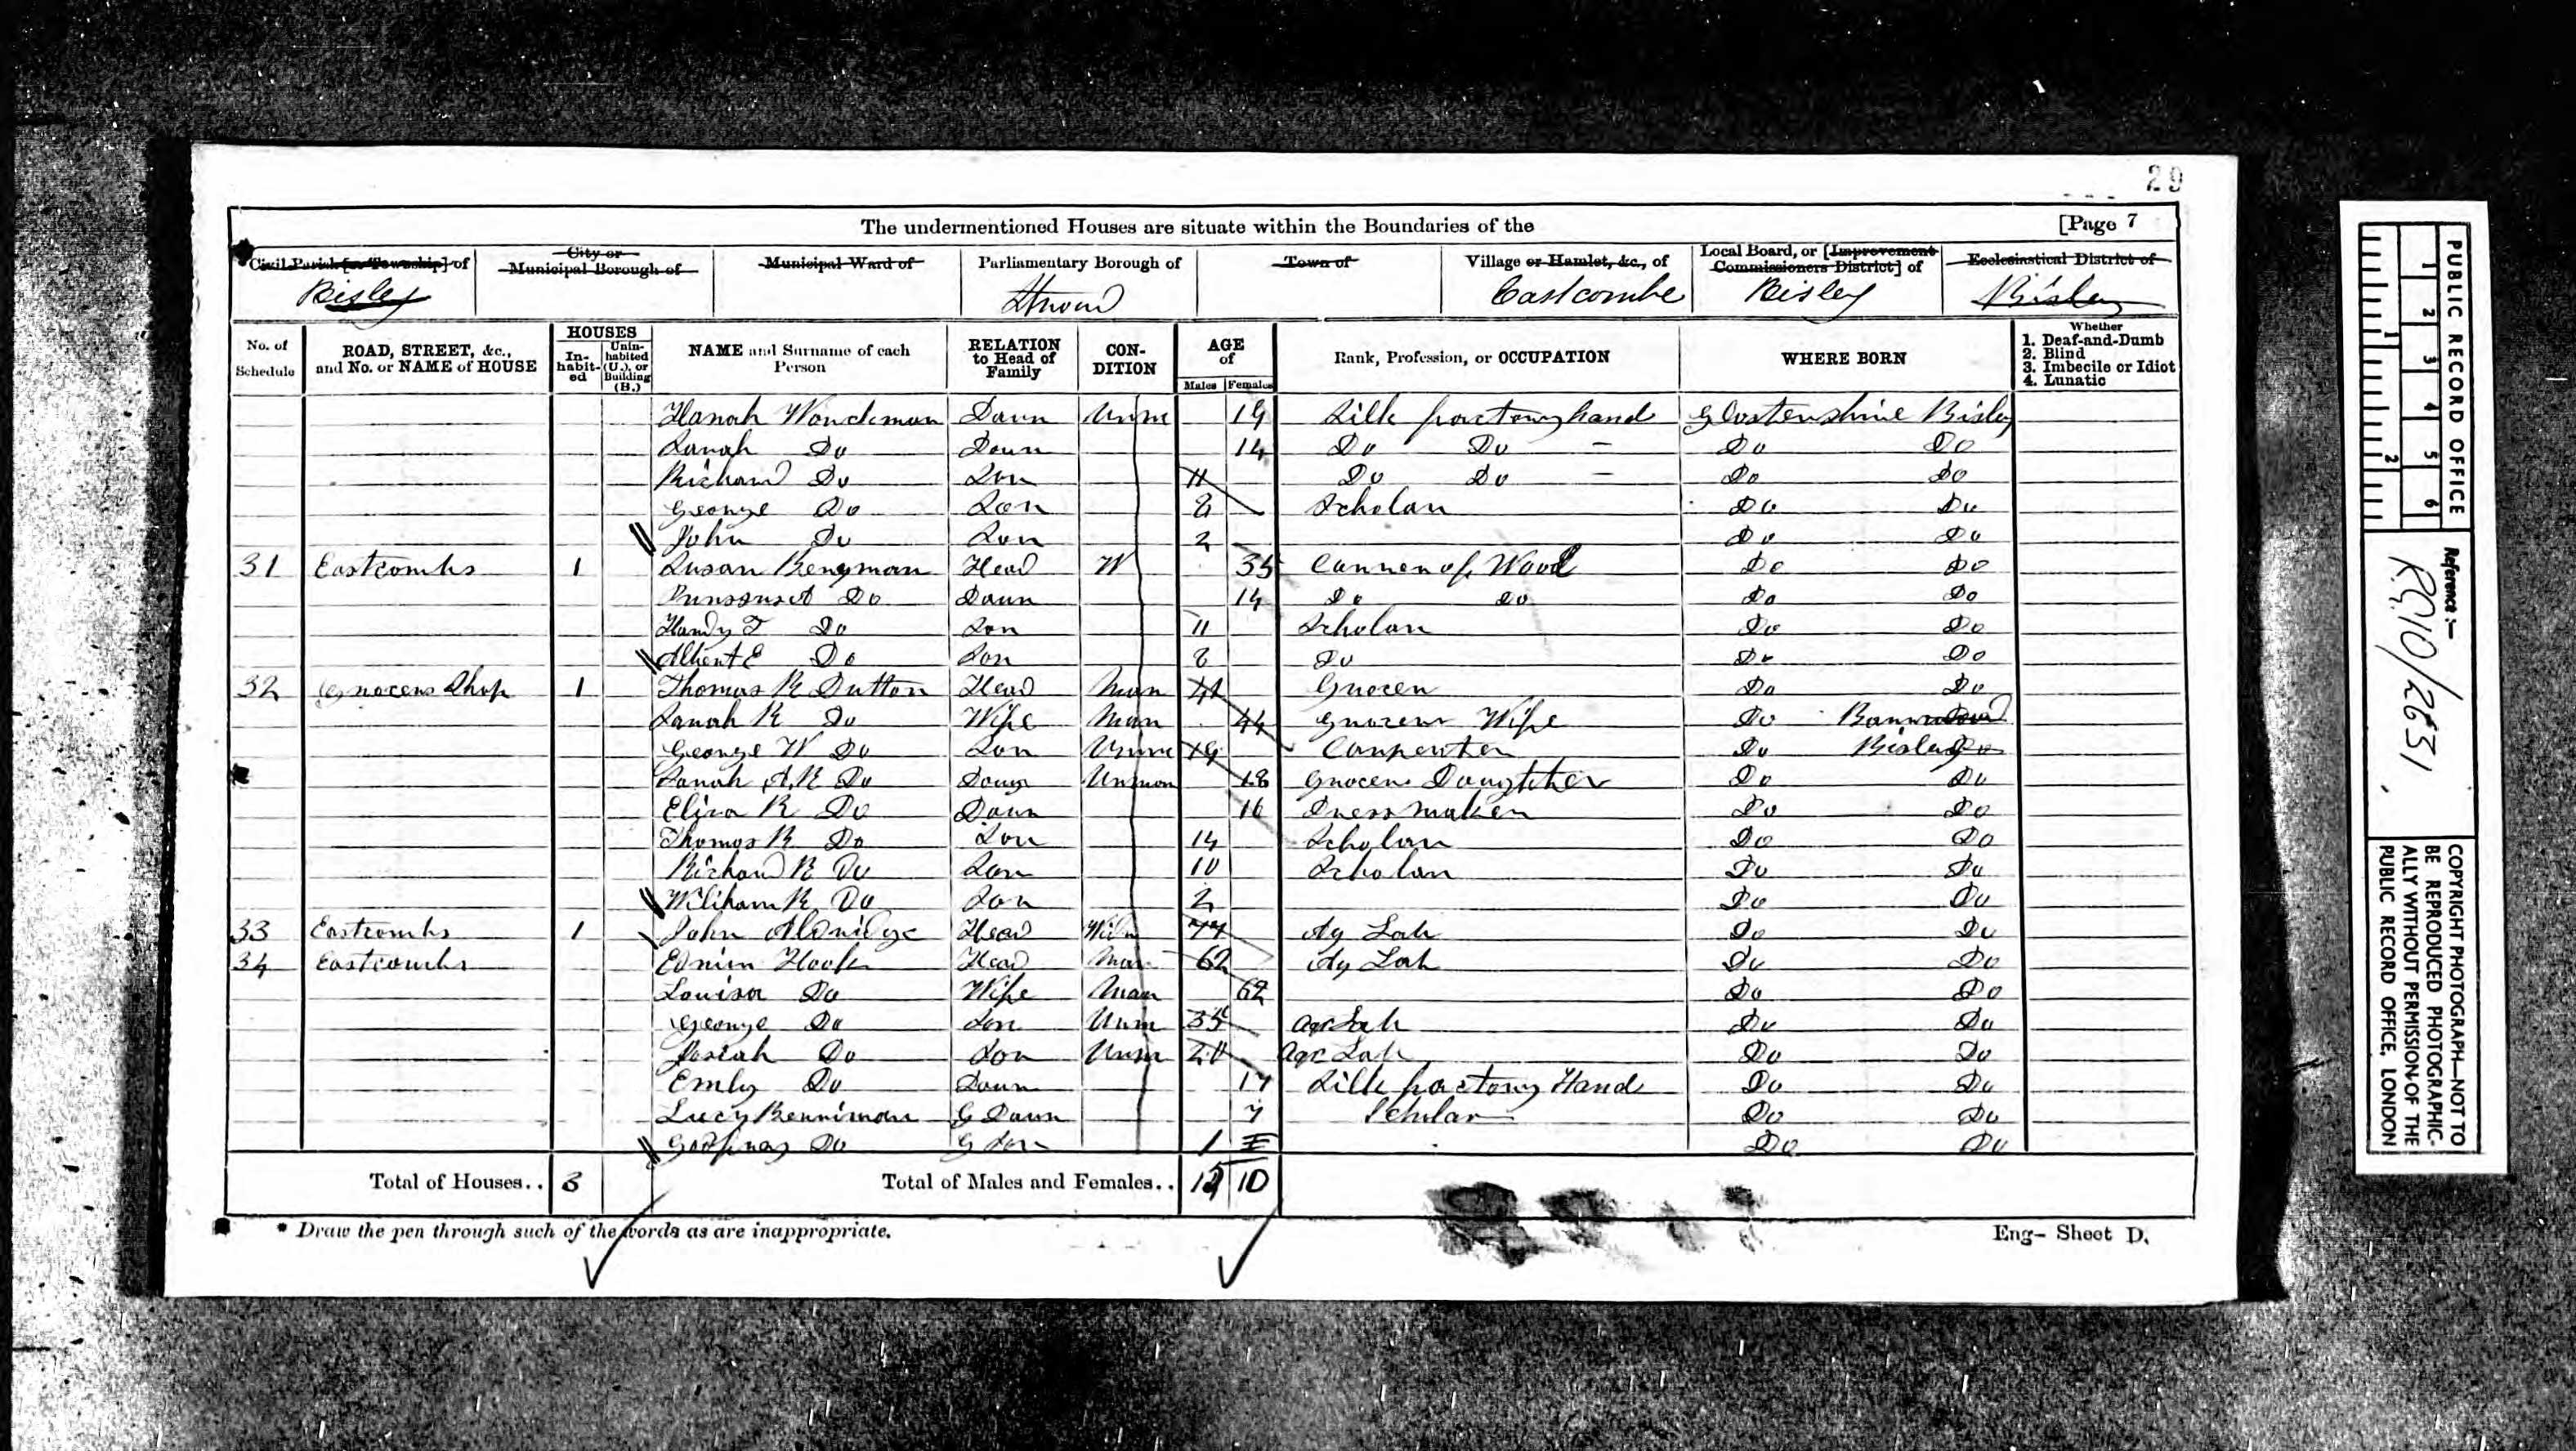 29
The undermentioned Houses are situate within the Boundaries of the [Page 7
Civil Parish [or Township] of City or Municipal Borough of Municipal Ward of Parliamentary Borough of Town of Village or Hamlet, &c., of Local Board, or [Improvement Commissioners District] of Ecclesiastical District of
Bisley Stroud Eastcombe Bisley Bisley
No. of Schedule ROAD, STREET, &c., and No. or NAME of HOUSE HOUSES Inhabited Uninhabited (U.), or Building (B.) NAME and Surname of each Person RELATION to Head of Family CONDITION AGE of Males Females Rank, Profession, or OCCUPATION WHERE BORN Whether 1. Deaf-and-Dumb 2. Blind 3. Imbecile or Idiot 4. Lunatic
Hanah Daur Unm 19 Silk factory hand Glostershire Bisley
Sarah Do Daur 14 Do Do Do Do
Richard Do Son 11 Do Do Do Do
George Do Son 8 Scholar Do Do
John Do Son 2 Do Do
31 Eastcombs 1 Susan Head W 35 Wood Do Do
Do Daur 14 Do Do Do Do
Do Son 11 Scholar Do Do
Albert E Do Son 8 Do Do Do
32 Grocers Shop 1 Thomas R Dutton Head Mar Grocer Do Do
Sarah R Do Wife Mar 44 Grocers Wife Do
George W Do Son Unm 19 Carpenter Do Bisley Do
Sarah A R Do Daur Unmar 18 Grocers Daughter Do Do
Eliza R Do Daur 16 Dressmaker Do Do
Thomas R Do Son 14 Scholar Do Do
Richard R Do Son 10 Scholar Do Do
William R Do Son 2 Do Do
33 Eastcombs 1 John Aldridge Head Widr 77 Ag Lab Do Do
34 Eastcombs Edwin Hook Head Mar 62 Ag Lab Do Do
Louisa Do Wife Mar 62 Do Do
George Do Son Unm 35 Agr Lab Do Do
Josiah Do Son Unm 20 Agr Lab Do Do
Emily Do Daur 17 Silk factory Hand Do Do
Lucy Benniman G Daur 7 Scholar Do Do
Godfray Do G Son 1 Do Do
Total of Houses.. 3 Total of Males and Females.. 15 10
* Draw the pen through such of the words as are inappropriate. Eng- Sheet D.
PUBLIC RECORD OFFICE
1 2 3 4 5 6
1 2
Reference:-
R.G.10/2631
COPYRIGHT PHOTOGRAPH—NOT TO
BE REPRODUCED PHOTOGRAPHIC-
ALLY WITHOUT PERMISSION OF THE
PUBLIC RECORD OFFICE, LONDON